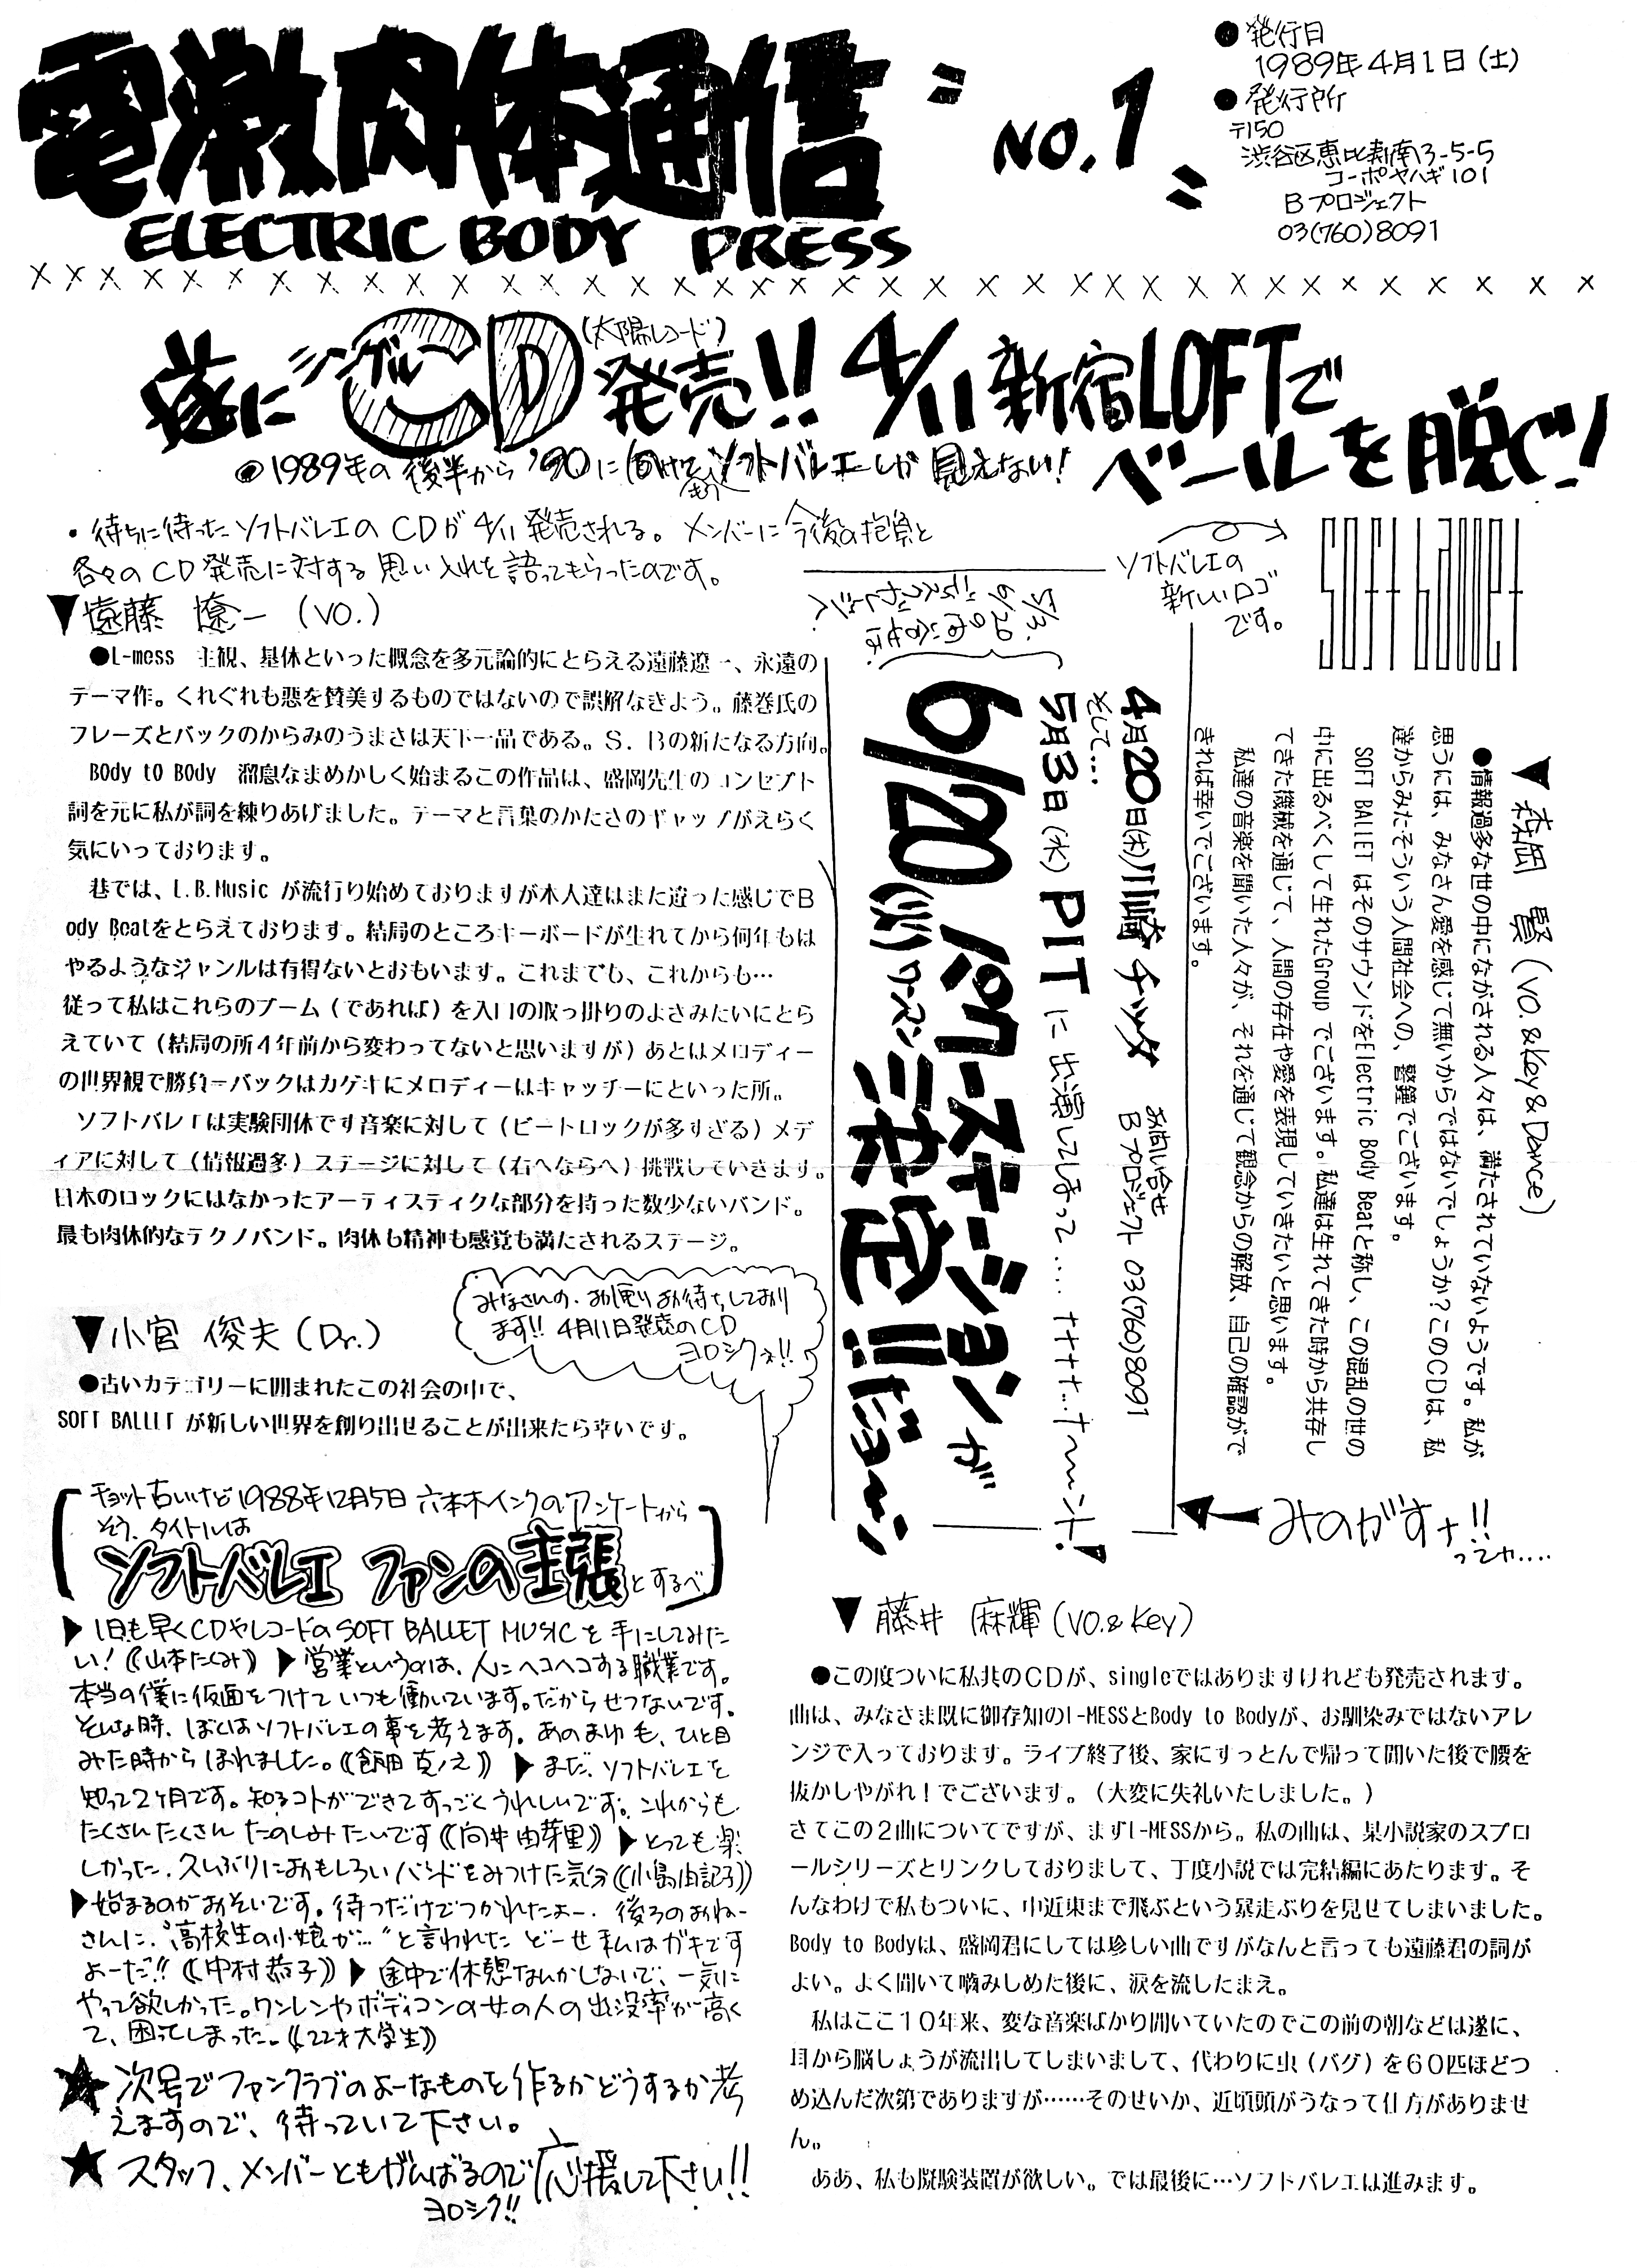 電激肉体通信
ELECTRIC BODY PRESS
= NO.1 =
●発行日
1989年4月1日(土)
●発行所
〒150
渋谷区恵比寿南3-5-5
コーポヤハギ101
Bプロジェクト
03(760)8091
遂にシングルCD(太陽レコード)発売!!4/11新宿LOFTで
ベールを脱ぐ!
◎1989年の後半から'90に向けてソフトバレエしか見えない!
・待ちに待ったソフトバレエのCDが4/11発売される。メンバーに今後の抱負と
各々のCD発売に対する思い入れを語ってもらったのです。
▼遠藤 遼一(VO.)
●L-mess 主観、基体といった概念を多元論的にとらえる遠藤遼一、永遠の
テーマ作。くれぐれも悪を賛美するものではないので誤解なきよう。藤巻氏の
フレーズとバックのからみのうまさは天下一品である。S.Bの新たなる方向。
BOdy tO BOdy 溜息なまめかしく始まるこの作品は、盛岡先生のコンセプト
詞を元に私が詞を練りあげました。テーマと言葉のかたさのギャップがえらく
気にいっております。
巷では、L.B.Music が流行り始めておりますが本人達はまた違った感じでB
ody Beatをとらえております。結局のところキーボードが生れてから何年もは
やるようなジャンルは有得ないとおもいます。これまでも、これからも…
従って私はこれらのブーム(であれば)を入口の取っ掛りのよさみたいにとら
えていて(結局の所4年前から変わってないと思いますが)あとはメロディー
の世界観で勝負=バックはカゲキにメロディーはキャッチーにといった所。
ソフトバレエは実験団体です音楽に対して(ビートロックが多すぎる)メデ
ィアに対して(情報過多)ステージに対して(右へならへ)挑戦していきます。
日本のロックにはなかったアーティスティクな部分を持った数少ないバンド。
最も肉体的なテクノバンド。肉体も精神も感覚も満たされるステージ。
みなさんの、お便りお待ちしており
ます!!4月11日発売のCD
ヨロシクネ!!
▼小宮 俊夫(Dr.)
●古いカテゴリーに囲まれたこの社会の中で、
SOFT BALLET が新しい世界を創り出せることが出来たら幸いです。
ソフトバレエの
新しいロゴ
です。
soft ballet
▼森岡 賢(VO.&Key&Dance)
●情報過多な世の中にながされる人々は、満たされていないようです。私が
思うには、みなさん愛を感じて無いからではないでしょうか?このCDは、私
達からみたそういう人間社会への、警鐘でございます。
SOFT BALLET はそのサウンドをElectric Body Beatと称し、この混乱の世の
中に出るべくして生れたGroup でございます。私達は生れてきた時から共存し
てきた機械を通じて、人間の存在や愛を表現していきたいと思います。
私達の音楽を聞いた人々が、それを通じて観念からの解放、自己の確認がで
きれば幸いでございます。
4月20日(木)川崎チッタ
お問い合せ
Bプロジェクト 03(760)8091
そして…
5月3日(水)PITに出演してしまって....
6/20(火)パワーステーションが
ワンマン決定!!だョ〜ン
←みのがすナ!!
ってカ....
[チョット古いけど1988年12月5日 六本木インクのアンケートから
そう、タイトルは
ソフトバレエ ファンの主張とするべ]
▶1日も早くCDやレコードのSOFT BALLET MUSICを手にしてみた
い!《山本たくみ》▶営業というのは、人にヘコヘコする職業です。
本当の僕に仮面をつけていつも働いています。だからせつないです。
そんな時、ぼくはソフトバレエの事を考えます。あのまゆ毛、ひと目
みた時からほれました。《飯田真ノ之》▶まだ、ソフトバレエを
知って2ヶ月です。知るコトができてすっごくうれしいです。これからも
たくさんたくさん たのしみたいです《向井由芽里》▶とっても楽
しかった。久しぶりにおもしろいバンドをみつけた気分《小島由記子》
▶始まるのがおそいです。待つだけでつかれたよー。後ろのおねー
さんに、"高校生の小娘が…"と言われた どーせ私はガキです
よーだ!!《中村恭子》▶途中で休憩なんかしないで、一気に
やって欲しかった。ワンレンやボディコンの女の人の出没率が高く
て、困ってしまった。《22才大学生》
★次号でファンクラブのよーなものを作るかどうするか考
えますので、待っていて下さい。
★スタッフ、メンバーともがんばるので応援して下さい!!
ヨロシク!!
▼藤井 麻輝(VO.&Key)
●この度ついに私共のCDが、singleではありますけれども発売されます。
曲は、みなさま既に御存知のL-MESSとBody to Bodyが、お馴染みではないアレ
ンジで入っております。ライブ終了後、家にすっとんで帰って聞いた後で腰を
抜かしやがれ!でございます。(大変に失礼いたしました。)
さてこの2曲についてですが、まずL-MESSから。私の曲は、某小説家のスプロ
ールシリーズとリンクしておりまして、丁度小説では完結編にあたります。そ
んなわけで私もついに、中近東まで飛ぶという暴走ぶりを見せてしまいました。
Body to Bodyは、盛岡君にしては珍しい曲ですがなんと言っても遠藤君の詞が
よい。よく聞いて噛みしめた後に、涙を流したまえ。
私はここ10年来、変な音楽ばかり聞いていたのでこの前の朝などは遂に、
耳から脳しょうが流出してしまいまして、代わりに虫(バグ)を60匹ほどつ
め込んだ次第でありますが……そのせいか、近頃頭がうなって仕方がありませ
ん。
ああ、私も擬験装置が欲しい。では最後に…ソフトバレエは進みます。